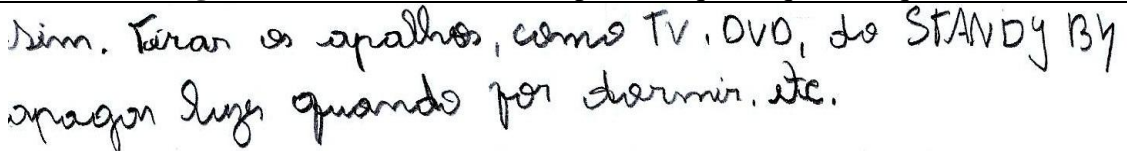 Sim. Tirar os apalhos, como TV, DVD, do STANDY BY
apagar luzes quando for dormir. etc.